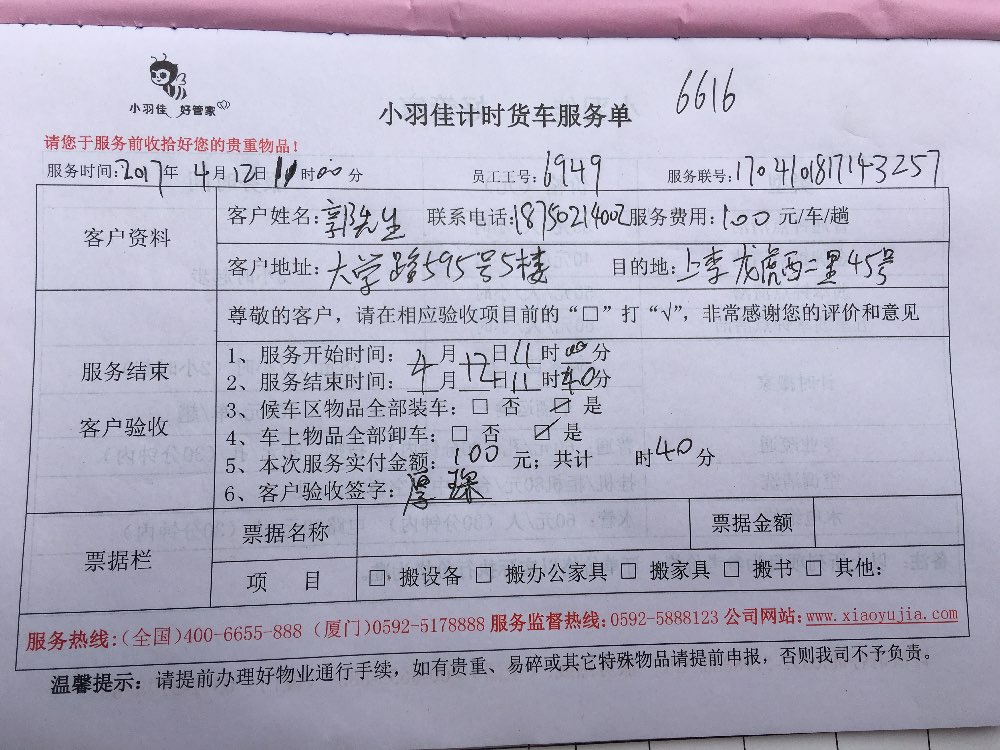 小羽佳 好管家
6616
小羽佳计时货车服务单
请您于服务前收拾好您的贵重物品！
服务时间:2017年 4月 12日 11时00分 员工工号:6949 服务联号:1704101817143257
客户资料
客户姓名:郭先生 联系电话:18750214002 服务费用:100 元/车/趟
客户地址: 大学路595号5楼 目的地: 上李龙虎西二里45号
服务结束
客户验收
尊敬的客户，请在相应验收项目前的“□”打“√”，非常感谢您的评价和意见
1、服务开始时间: 4月12日11时00分
2、服务结束时间: 4月12日11时40分
3、候车区物品全部装车: □ 否 ☑ 是
4、车上物品全部卸车: □ 否 ☑ 是
5、本次服务实付金额: 100 元; 共计 时40分
6、客户验收签字:
票据栏
票据名称 票据金额
项 目 □ 搬设备 □ 搬办公家具 □ 搬家具 □ 搬书 □ 其他:
服务热线:(全国)400-6655-888 (厦门)0592-5178888 服务监督热线:0592-5888123 公司网站:www.xiaoyujia.com
温馨提示: 请提前办理好物业通行手续，如有贵重、易碎或其它特殊物品请提前申报，否则我司不予负责。